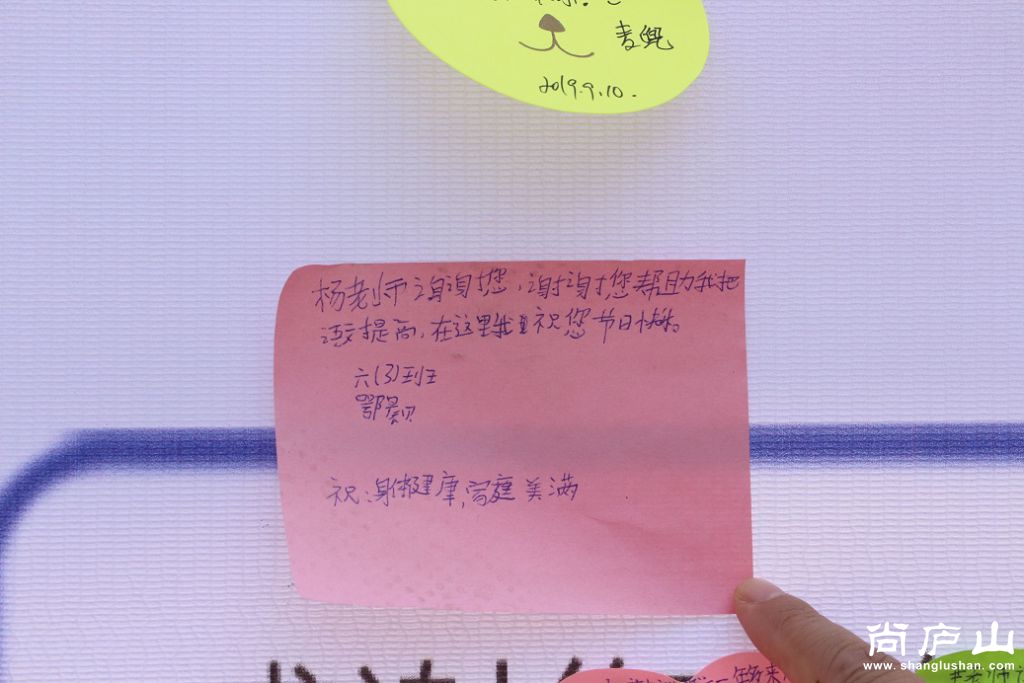 2019.9.10.
杨老师谢谢您，谢谢您帮助我把
语文提高，在这里我祝您节日快乐。
六(3)班
祝：身体健康，家庭美满
尚庐山
www.shanglushan.com